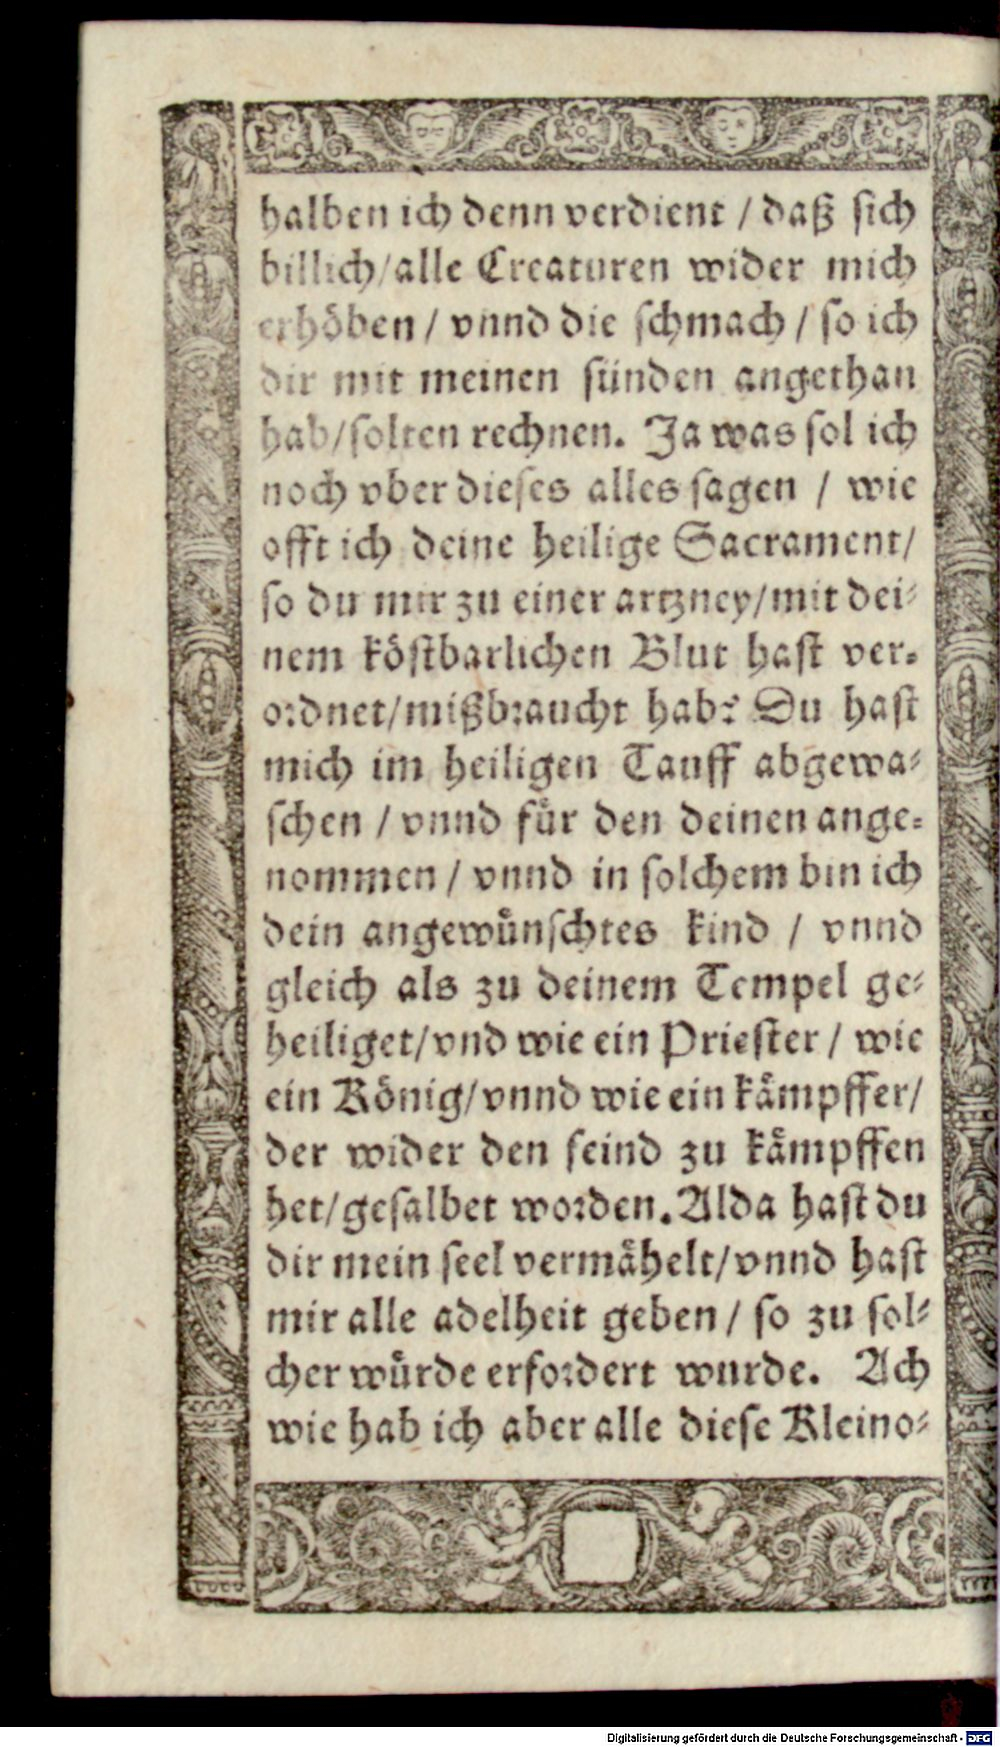 halben ich denn verdient / daß sich
billich/alle Creaturen wider mich
erhöben / vnnd die schmach / so ich
dir mit meinen sünden angethan
hab/solten rechnen. Ja was sol ich
noch vber dieses alles sagen / wie
offt ich deine heilige Sacrament/
so du mir zu einer artzney/mit dei-
nem köstbarlichen Blut hast ver-
ordnet/mißbraucht hab? Du hast
mich im heiligen Tauff abgewa-
schen / vnnd für den deinen ange-
nommen / vnnd in solchem bin ich
dein angewünschtes kind / vnnd
gleich als zu deinem Tempel ge-
heiliget/vnd wie ein Priester / wie
ein König/vnnd wie ein kämpffer/
der wider den feind zu kämpffen
het/gesalbet worden. Alda hast du
dir mein seel vermähelt/vnnd hast
mir alle adelheit geben / so zu sol-
cher würde erfordert wurde. Ach
wie hab ich aber alle diese Kleino-
Digitalisierung gefördert durch die Deutsche Forschungsgemeinschaft - DFG